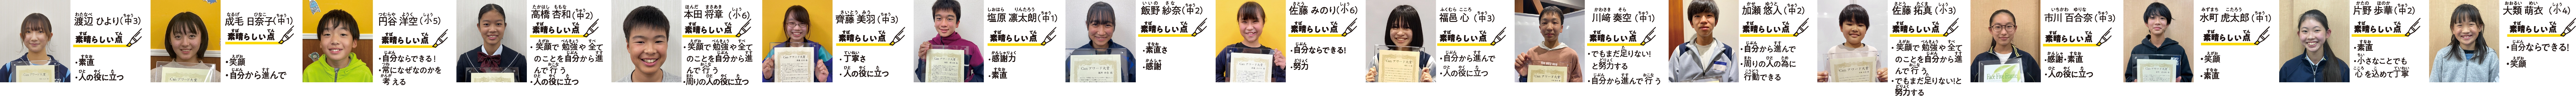 渡辺 ひより(中3)
素晴らしい点
・素直
・人の役に立つ
成毛 日奈子(中1)
素晴らしい点
・笑顔
・自分から進んで
円谷 洋空(小5)
素晴らしい点
・自分ならできる!
・常になぜなのかを
考える
高橋 杏和(中2)
素晴らしい点
・笑顔で勉強や全て
のことを自分から進
んで行う
・人の役に立つ
本田 将章(小6)
素晴らしい点
・笑顔で勉強や全て
のことを自分から進
んで行う
・周りの人の役に立つ
齊藤 美羽(中3)
素晴らしい点
・丁寧さ
・人の役に立つ
塩原 凛太朗(中1)
素晴らしい点
・感謝力
・素直
飯野 紗奈(中2)
素晴らしい点
・素直さ
・感謝
佐藤 みのり(小6)
素晴らしい点
・自分ならできる!
・努力
福邑 心(中3)
素晴らしい点
・自分から進んで
・人の役に立つ
川﨑 奏空(中1)
素晴らしい点
・でもまだ足りない!
と努力する
・自分から進んで行う
加瀬 悠人(中2)
素晴らしい点
・自分から進んで
・周りの人の為に
行動できる
佐藤 拓真(小3)
素晴らしい点
・笑顔で勉強や全て
のことを自分から進
んで行う
・でもまだ足りない!と
努力する
市川 百合奈(中3)
素晴らしい点
・感謝・素直
・人の役に立つ
水町 虎太郎(中1)
素晴らしい点
・笑顔
・素直
片野 歩華(中2)
素晴らしい点
・素直
・小さなことでも
心を込めて丁寧
大類 萌衣(小4)
素晴らしい点
・自分ならできる!
・笑顔